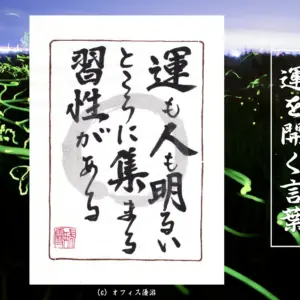 運を開く言葉
運も人も明るい
ところに集まる
習性がある
(c) オフィス湧沼